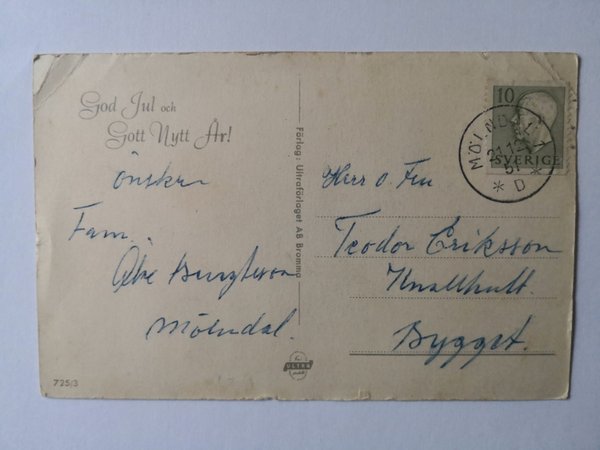 God Jul och
Gott Nytt År!
önskar
Fam.
Åke
Mölndal.
725/3
Förlag: Ultraförlaget AB Bromma
ULTRA
10
SVERIGE
MÖLNDAL 1
21.12
51
* D *
Herr o Fru
Teodor Eriksson
Knallhult.
Bygget.